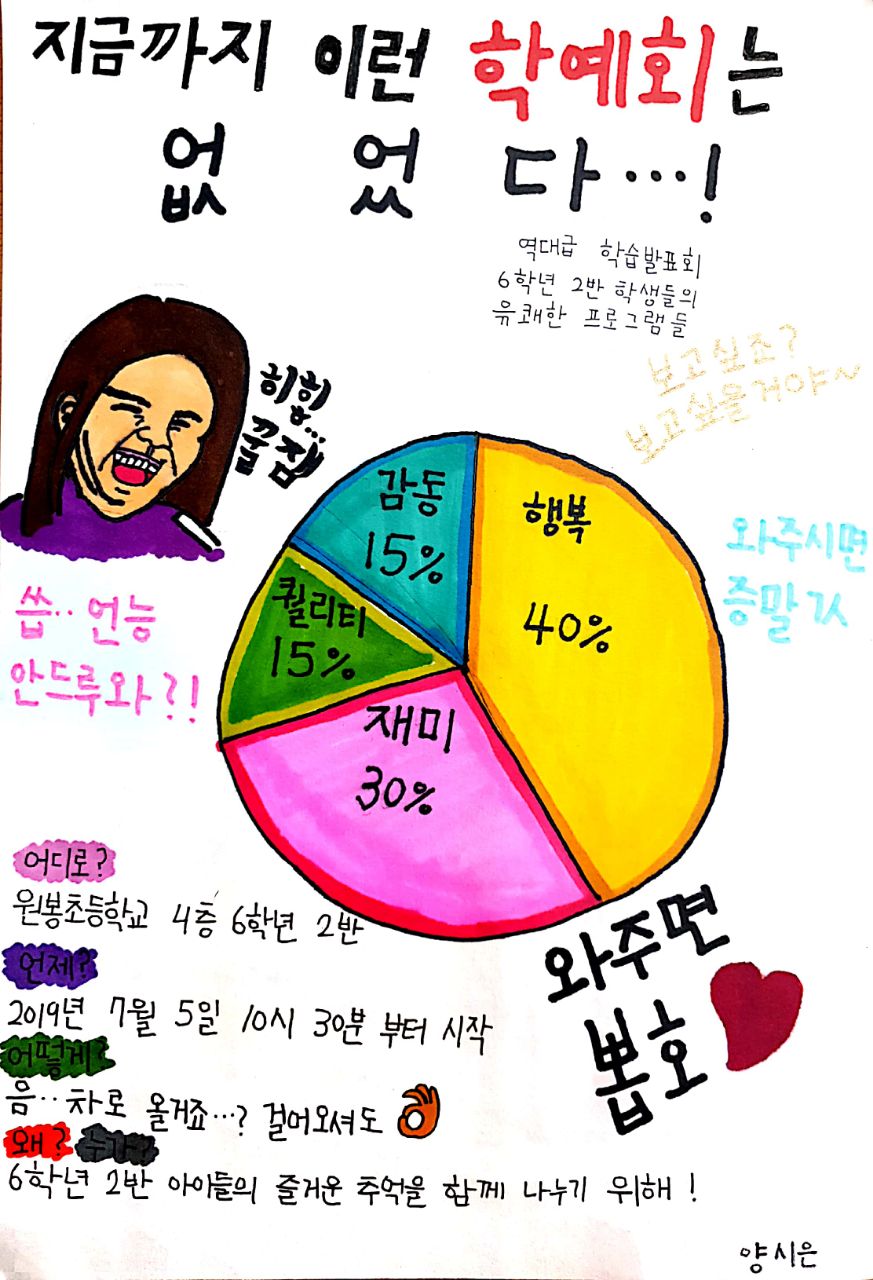 지금까지 이런 학예회는
없었다...!
역대급 학습발표회
6학년 2반 학생들의
유쾌한 프로그램들
보고싶죠?
보고싶을거야~
히힙...
꿀잼
감동
15%
행복
40%
퀄리티
15%
재미
30%
와주시면
증말 감사
씁.. 언능
안드루와?!
어디로?
원봉초등학교 4층 6학년 2반
언제?
2019년 7월 5일 10시 30분 부터 시작
어떻게?
음.. 차로 올거죠...? 걸어오셔도
왜? 누가?
6학년 2반 아이들의 즐거운 추억을 함께 나누기 위해!
와주면
뽑호
양시은